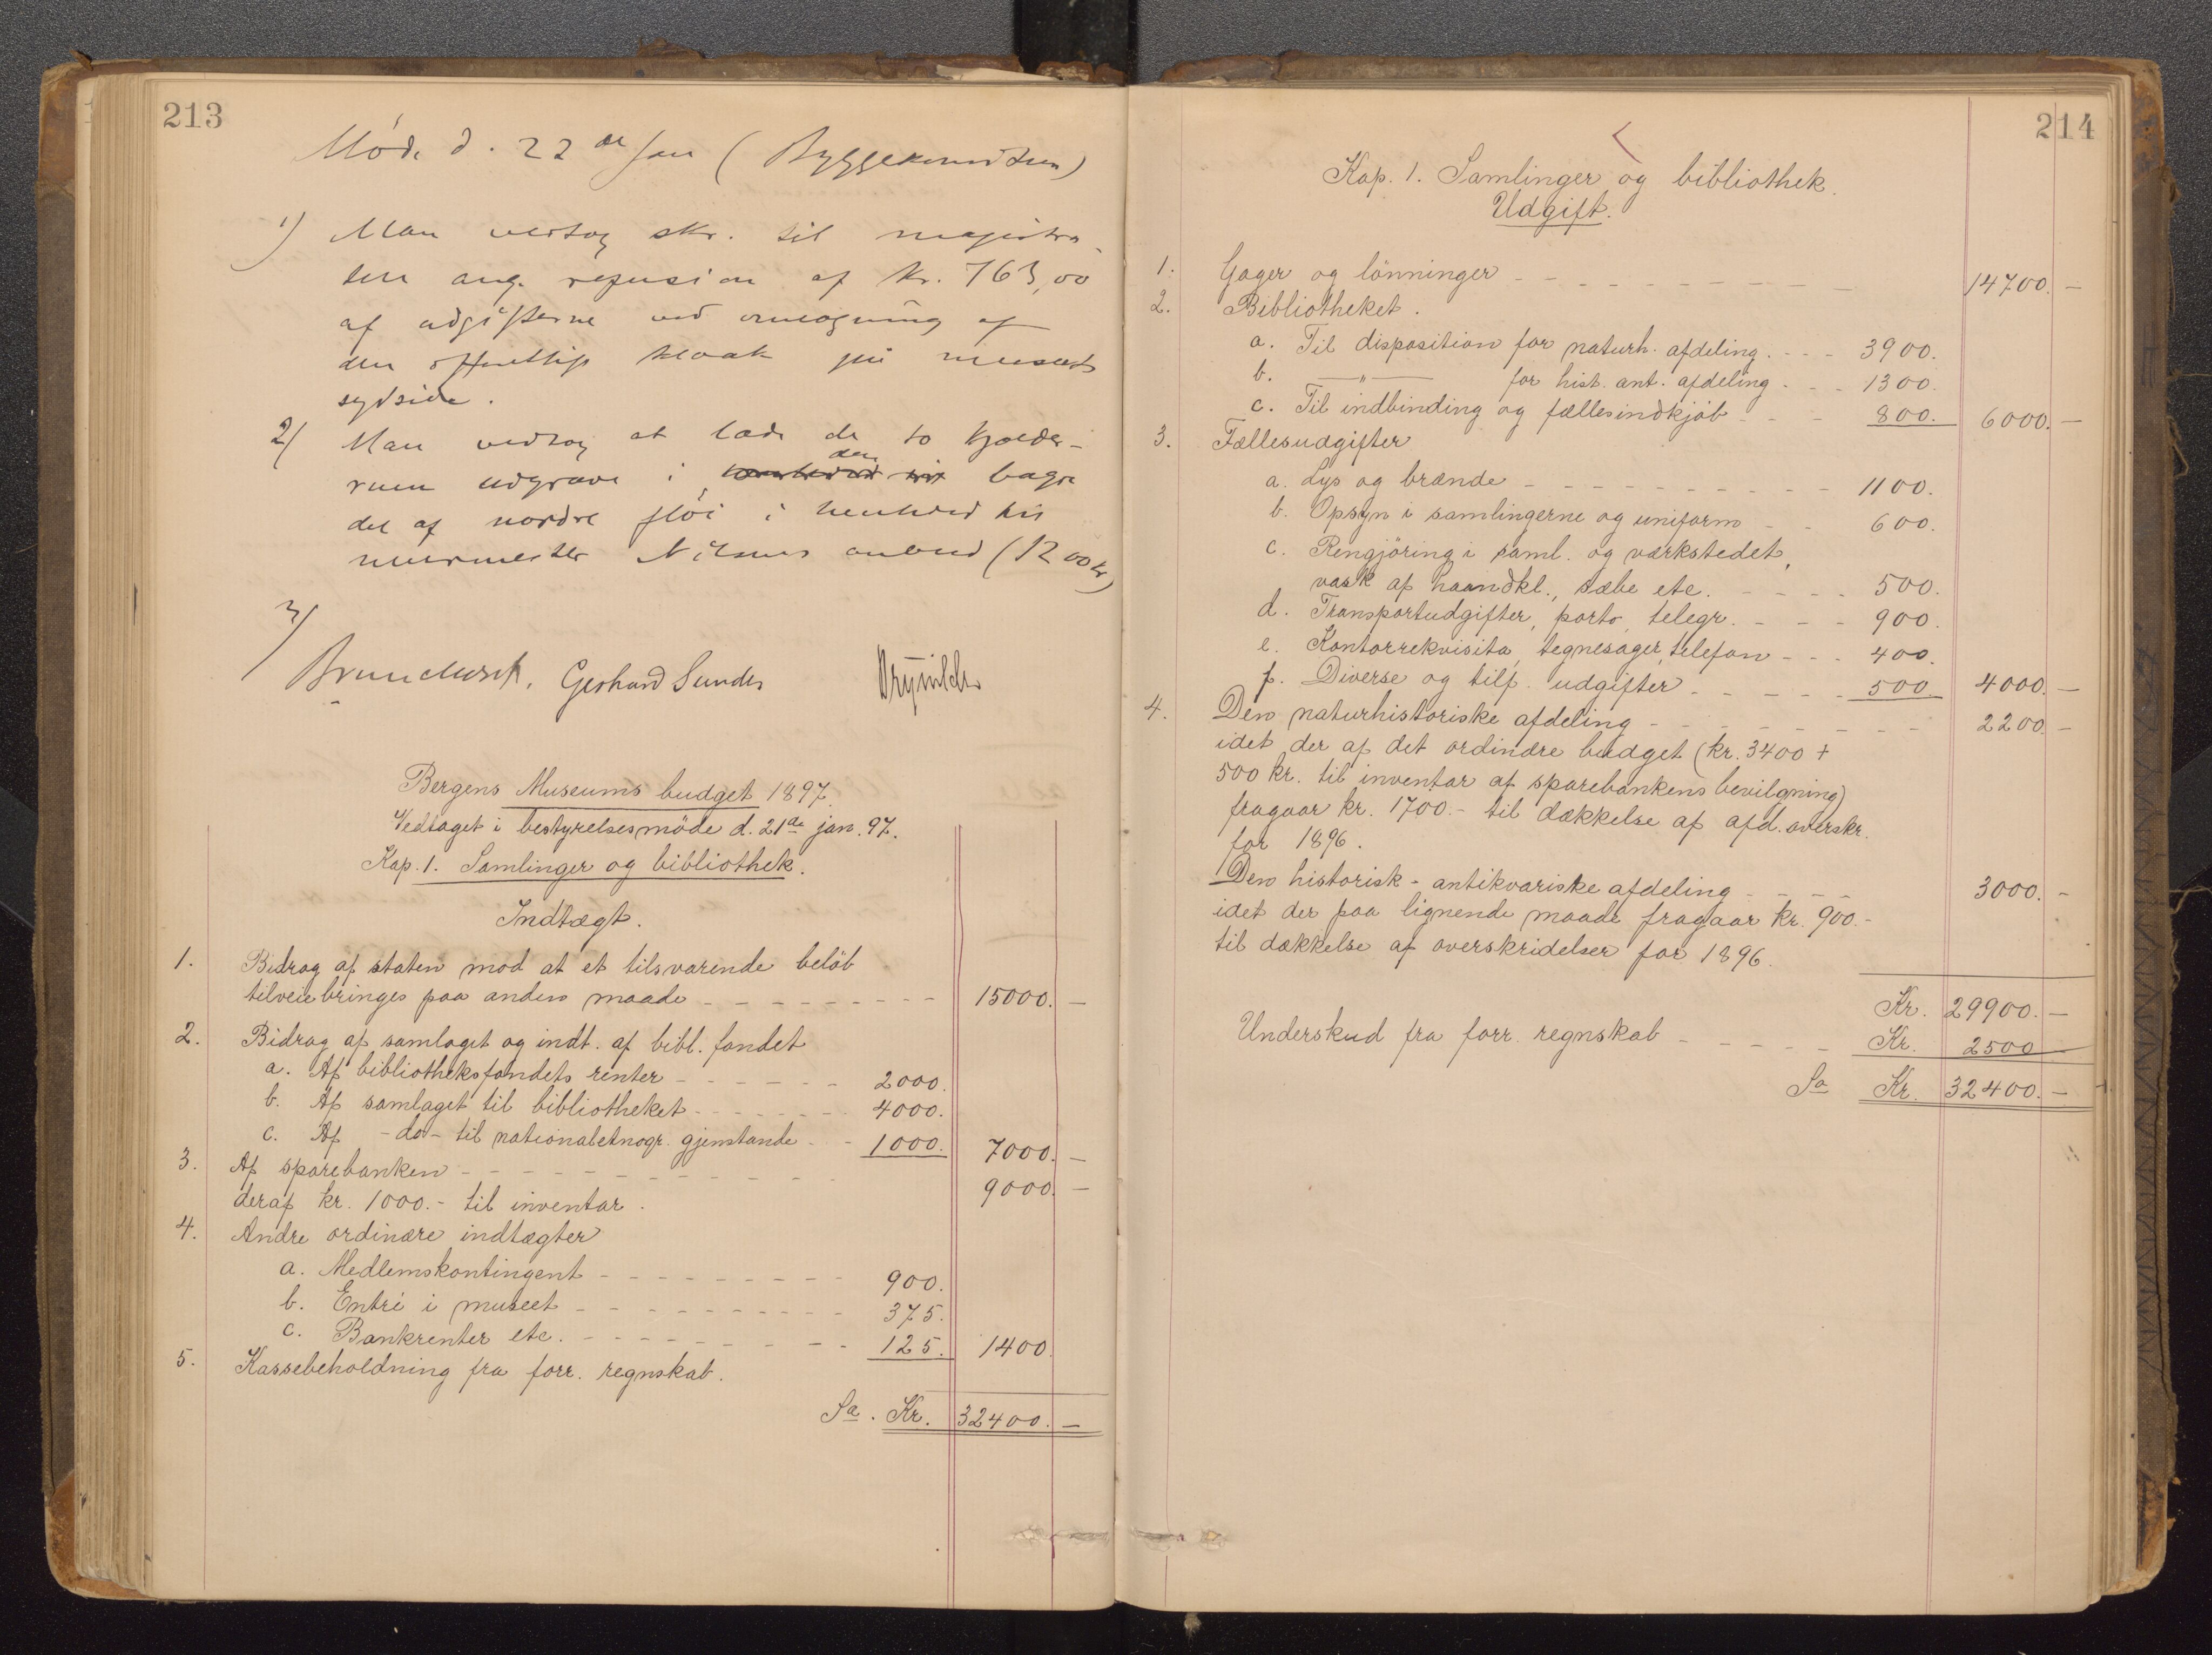 213
Möde d. 22de Jan (Byggekomiteen)
1) Man vedtog skr. til magistra-
ten ang. refusion af kr. 763,00
af udgifterne ved omlægning af
den offentlige kloak på museets
sydside.
2) Man vedtog at lade de to kjælder-
rum udgrave i den bagre
del af nordre flöi i henhold til
murmester Nilsens anbud (1200 kr)
3)
Brunchorst. Gerhard
Bergens Museums budget 1897.
Vedtaget i bestyrelsesmöde d. 21de jan. 97.
Kap. 1. Samlinger og bibliothek.
Indtægt.
1. Bidrag af staten mod at et tilsvarende belöb
tilveiebringes paa anden maade - - - - - - - - 15000. —
2. Bidrag af samlaget og indt. af bibl. fondet
a. Af bibliotheksfondets renter - - - - - - 2000.
b. Af samlaget til bibliotheket - - - - - - 4000.
c. Af -do- til nationaletnogr. gjenstande - - 1000. 7000. —
3. Af sparebanken - - - - - - - - - - - 9000. —
deraf kr. 1000.- til inventar.
4. Andre ordinære indtægter
a. Medlemskontingent - - - - - - - - 900.
b. Entré i museet - - - - - - - - - 375.
c. Bankrenter etc. - - - - - - - - - 125. 1400.
5. Kassebeholdning fra forr. regnskab.
Sa. Kr. 32400. —
214
Kap. 1. Samlinger og bibliothek.
Udgift.
1. Gager og lönninger - - - - - - - - - - 14700. —
2. Bibliotheket.
a. Til disposition for naturh. afdeling. - - - 3900.
b. —"— for hist. ant. afdeling - - - 1300.
c. Til indbinding og fællesindkjöb - - - 800. 6000. —
3. Fællesudgifter
a. Lys og brænde - - - - - - - - - - 1100.
b. Opsyn i samlingerne og uniform - - 600.
c. Rengjöring i saml. og værkstedet,
vask af haandkl., sæbe etc. - - - - - 500.
d. Transportudgifter, porto, telegr. - - - - 900.
e. Kontorrekvisita, tegnesager, telefon - - - 400.
f. Diverse og tilf. udgifter - - - - - 500. 4000. —
4. Den naturhistoriske afdeling - - - - - - - - 2200. —
idet der af det ordinære budget (kr. 3400 +
500 kr. til inventar af sparebankens bevilgning)
fragaar kr. 1700.- til dækkelse af afd. overskr.
for 1896.
Den historisk-antikvariske afdeling - - - - 3000. -
idet der paa lignende maade fragaar kr. 900.-
til dækkelse af overskridelser for 1896.
Kr. 29900. —
Underskud fra forr. regnskab - - - - - Kr. 2500 —
Sa Kr. 32400. —